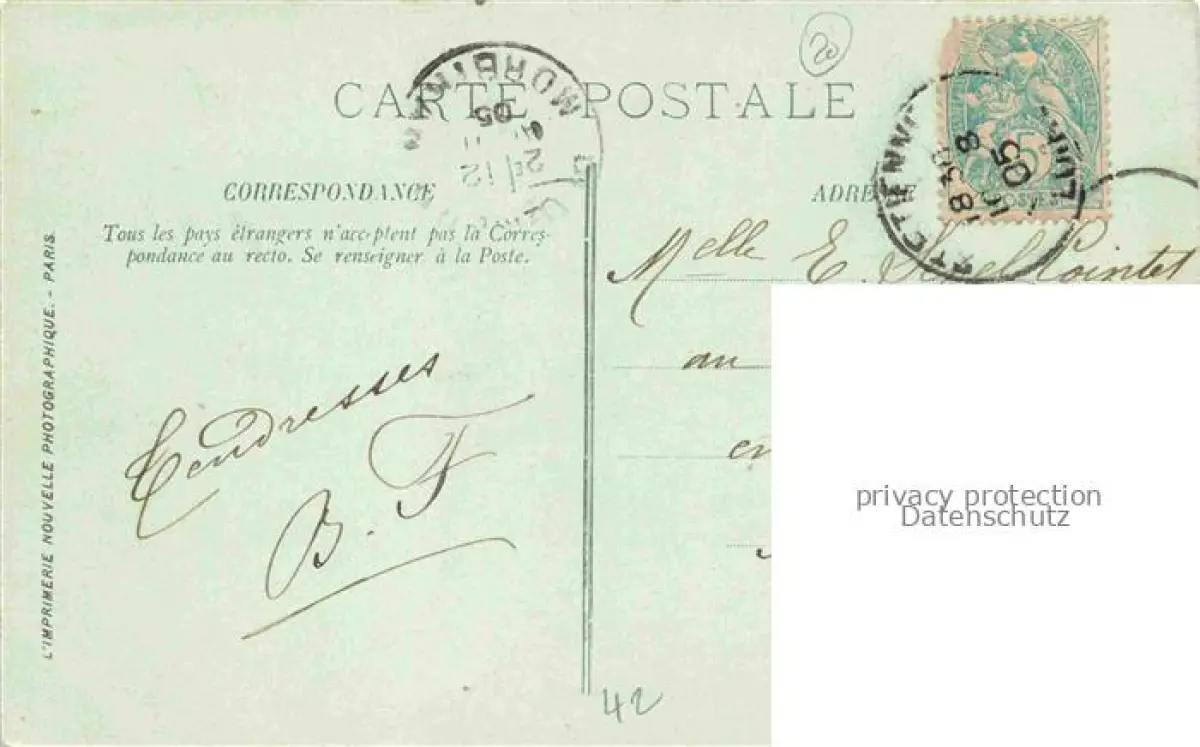 20
CARTE POSTALE
MORBIHAN
05
CORRESPONDANCE
ADRESSE
Tous les pays étrangers n'acceptent pas la Corres-
pondance au recto. Se renseigner à la Poste.
ST ETIENNE
LOIRE
18 30
8
10
05
5
POSTES
Melle E.
au
en
Tendresses
B. F
L'IMPRIMERIE NOUVELLE PHOTOGRAPHIQUE. - PARIS.
privacy protection
Datenschutz
42